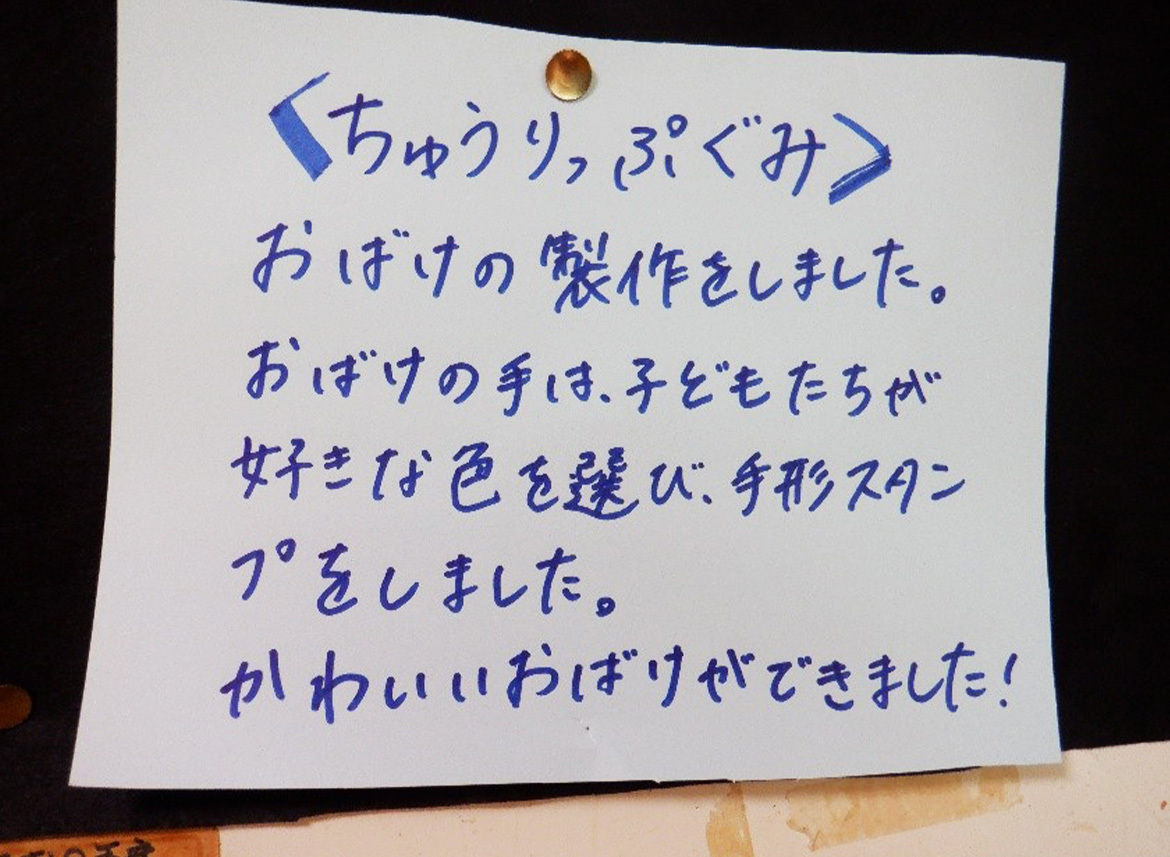 <ちゅうりっぷぐみ>
おばけの製作をしました。
おばけの手は、子どもたちが
好きな色を選び、手形スタン
プをしました。
かわいいおばけができました!